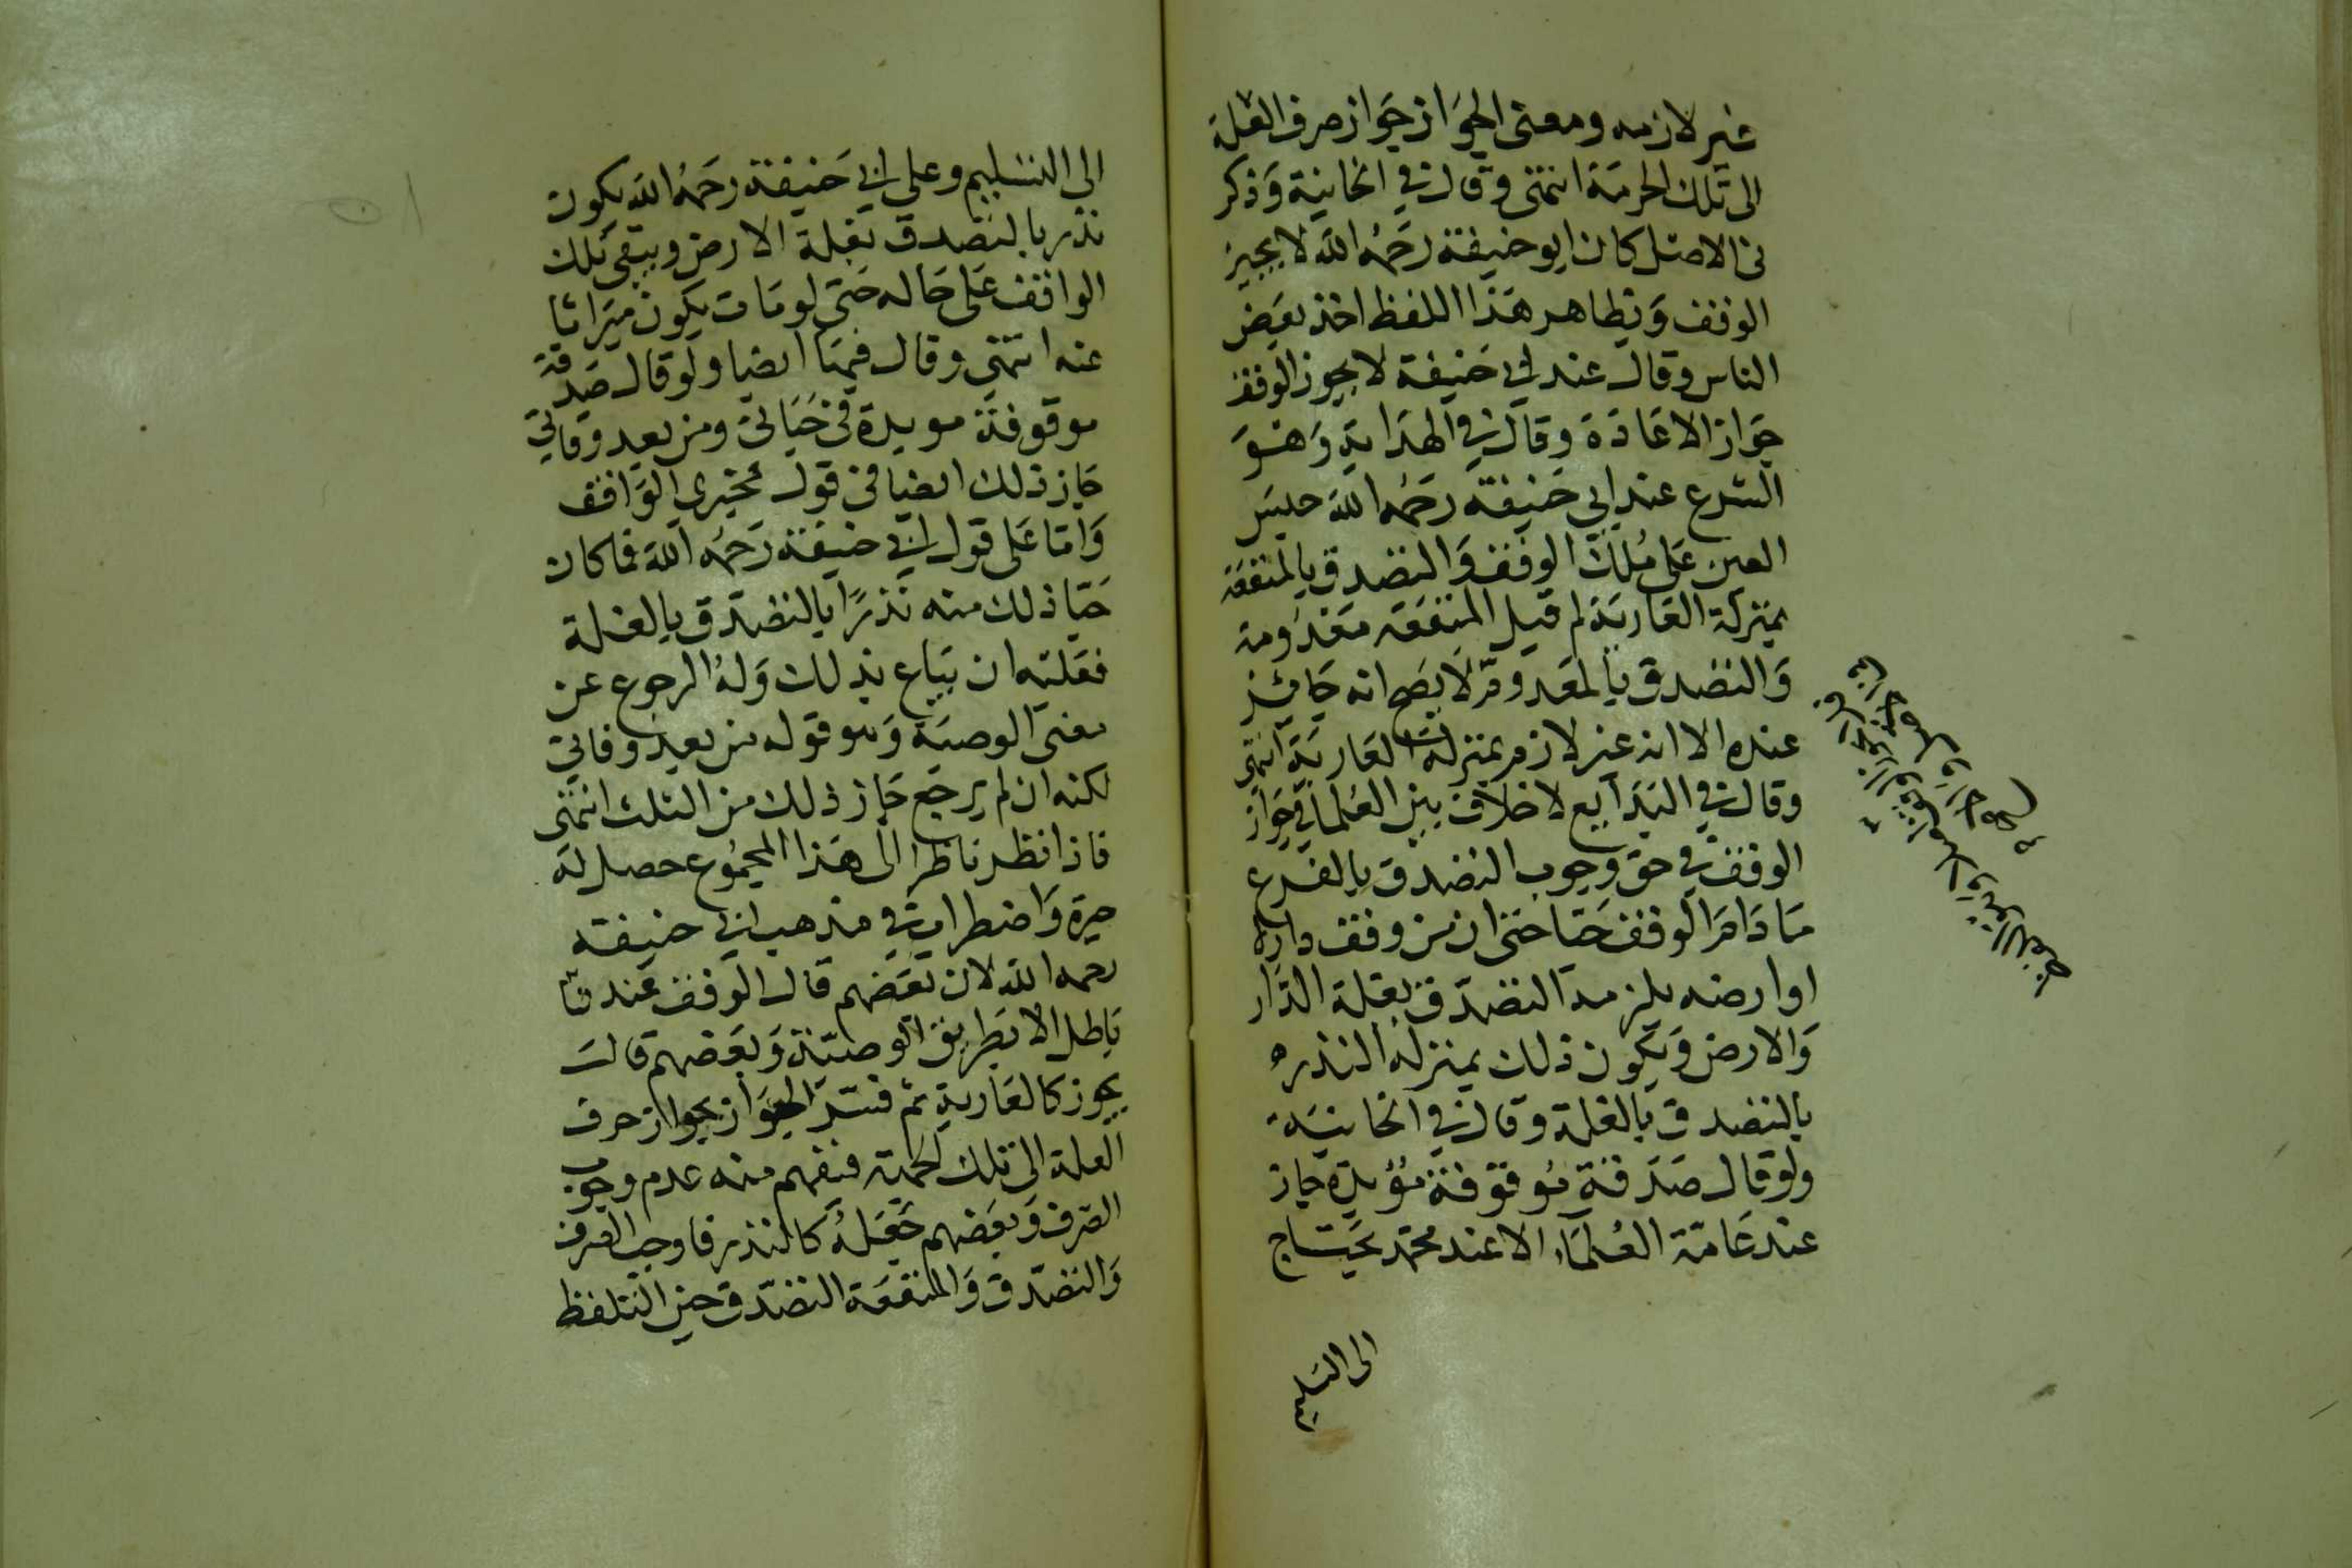 غير لازمه ومعنى الجواز جواز صرف الغلة
الى تلك الجهة انتهى وقال في الخانية وذكر
في الاصل كان ابو حنيفة رحمه الله لا يجيز
الوقف وبظاهر هذا اللفظ اخذ بعض
الناس وقال عند ابي حنيفة لا يجوز الوقف
جواز الاعادة وقال في الهداية وهو
الشرع عند ابي حنيفة رحمه الله حبس
العين على ملك الوقف والتصدق بالمنفعة
بمنزلة العارية ثم قيل المنفعة معدومة
والتصدق بالمعدوم لا يصح انه جائز
عنده الا انه غير لازم بمنزلة العارية انتهى
وقال في البدايع لا خلاف بين العلما في جواز
الوقف في حق وجوب التصدق بالفرع
ما دام الوقف حيا حتى ان من وقف داره
او ارضه يلزمه التصدق بغلة الدار
والارض ويكون ذلك بمنزلة النذر
بالتصدق بالغلة وقال في الخانية
ولو قال صدقة موقوفة مؤبدة جاز
عند عامة العلماء الا عند محمد يحتاج
الى التسليم
الى التسليم وعلى ابي حنيفة رحمه الله يكون
نذر بالتصدق بغلة الارض ويبقى تلك
الواقف على حاله حتى لو مات يكون ميراثا
عنه انتهى وقال فيها ايضا ولو قال صدقة
موقوفة موبدة في حياتي ومن بعد وفاتي
جاز ذلك ايضا في قول الواقف
واما على قول ابي حنيفة رحمه الله فما كان
حيا ذلك منه نذرا بالتصدق بالغلة
فعليه ان يباع بذلك وله الرجوع عن
معنى الوصية وهو قوله من بعد وفاتي
لكنه ان لم يرجع جاز ذلك من الثلث انتهى
فاذا نظر ناظر الى هذا المجموع حصل له
حيرة واضطراب في مذهب ابي حنيفة
رحمه الله لان بعضهم قال الوقف عندنا
باطل الا بطريق الوصية وبعضهم قال
يجوز كالعارية ثم فسر الجواز بجواز صرف
الغلة الى تلك الجهة فنفهم منه عدم وجوب
الصرف وبعضهم جعله كالنذر فاوجب الصرف
والتصدق والمنفعة التصدق حين التلفظ